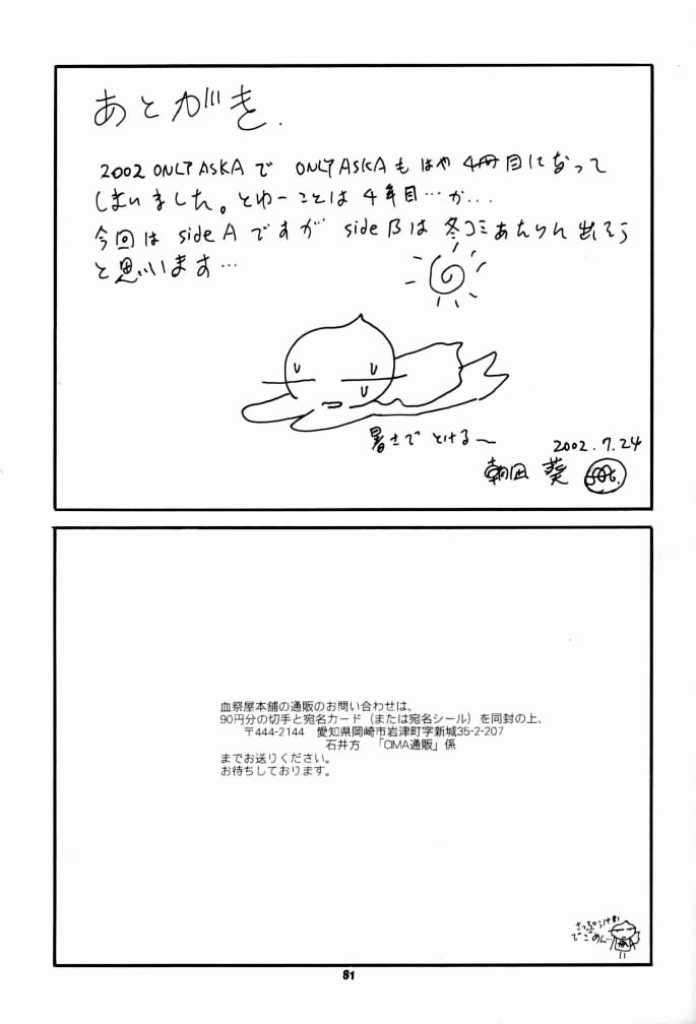 あとがき.
2002 ONLY ASKAで ONLY ASKAもはや4冊目になって
しまいました。とゆーことは4年目…か...
今回は side Aですが side Bは冬コミあたりに出そう
と思います…
暑さで とける〜
2002.7.24
朝凪 葵
血祭屋本舗の通販のお問い合わせは、
90円分の切手と宛名カード（または宛名シール）を同封の上、
〒444-2144 愛知県岡崎市岩津町字新城35-2-207
石井方 「OMA通販」係
までお送りください。
お待ちしております。
でこめん
81